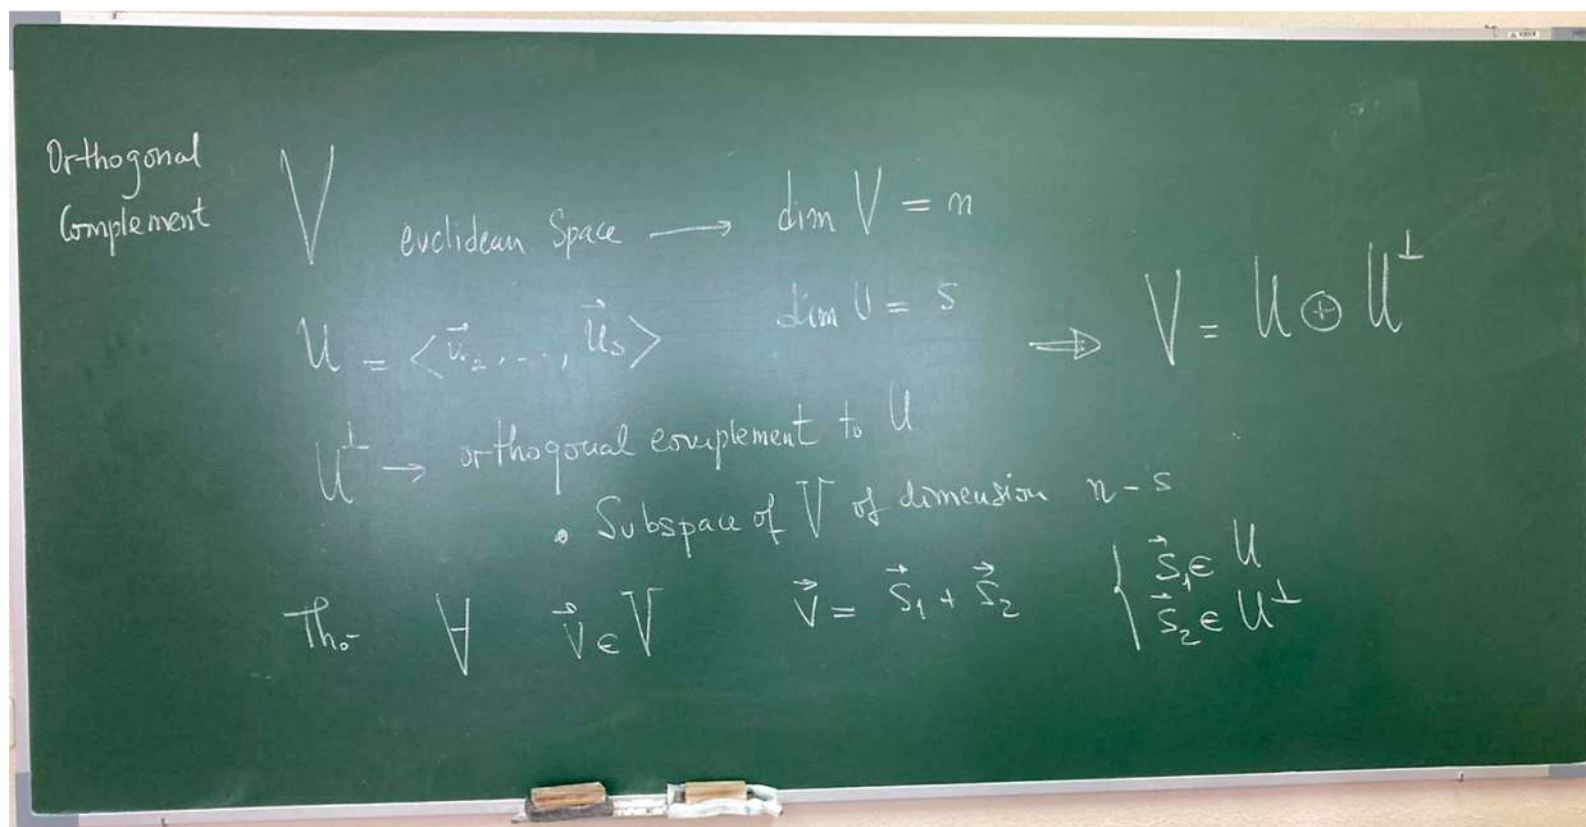 Orthogonal
Complement
V euclidean Space → dim V = n
U = <v⃗₂, ..., u⃗ₛ> dim U = s
⇒ V = U ⊕ U^⊥
U^⊥ → orthogonal complement to U
• Subspace of V of dimension n - s
Th.- ∀ v⃗ ∈ V v⃗ = s⃗₁ + s⃗₂ { s⃗₁ ∈ U
s⃗₂ ∈ U^⊥